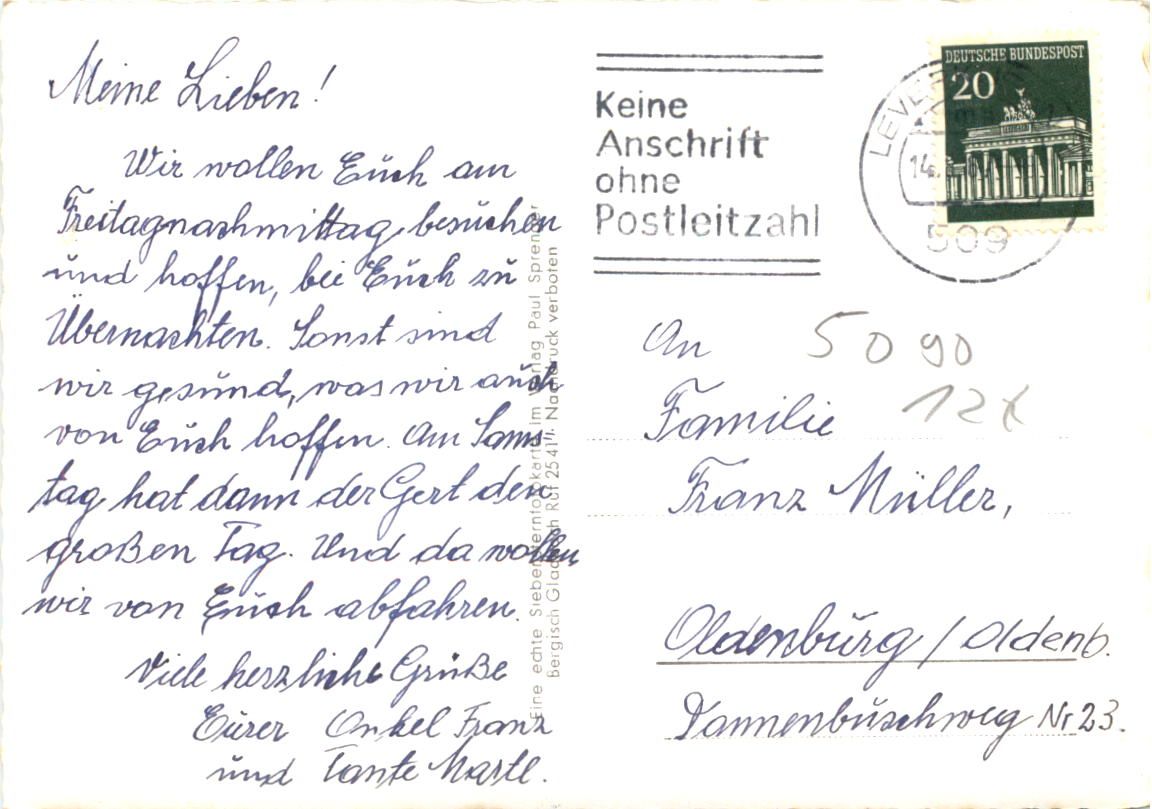 Meine Lieben!
Wir wollen Euch am
Freitagnachmittag besuchen
und hoffen, bei Euch zu
Übernachten. Sonst sind
wir gesund, was wir auch
von Euch hoffen. Am Sams-
tag hat dann der Gert den
großen Tag. Und da wollen
wir von Euch abfahren.
Viele herzliche Grüße
Eurer Onkel Franz
und Tante Martl.
Eine echte Siebensterntonkarte im Verlag Paul Sprenger
Bergisch Gladbach Ruf 2541 Nachdruck verboten
Keine
Anschrift
ohne
Postleitzahl
DEUTSCHE BUNDESPOST
20
509
An
5090
12x
Familie
Franz Müller,
Oldenburg / Oldenb.
Tannenbuschweg Nr 23.